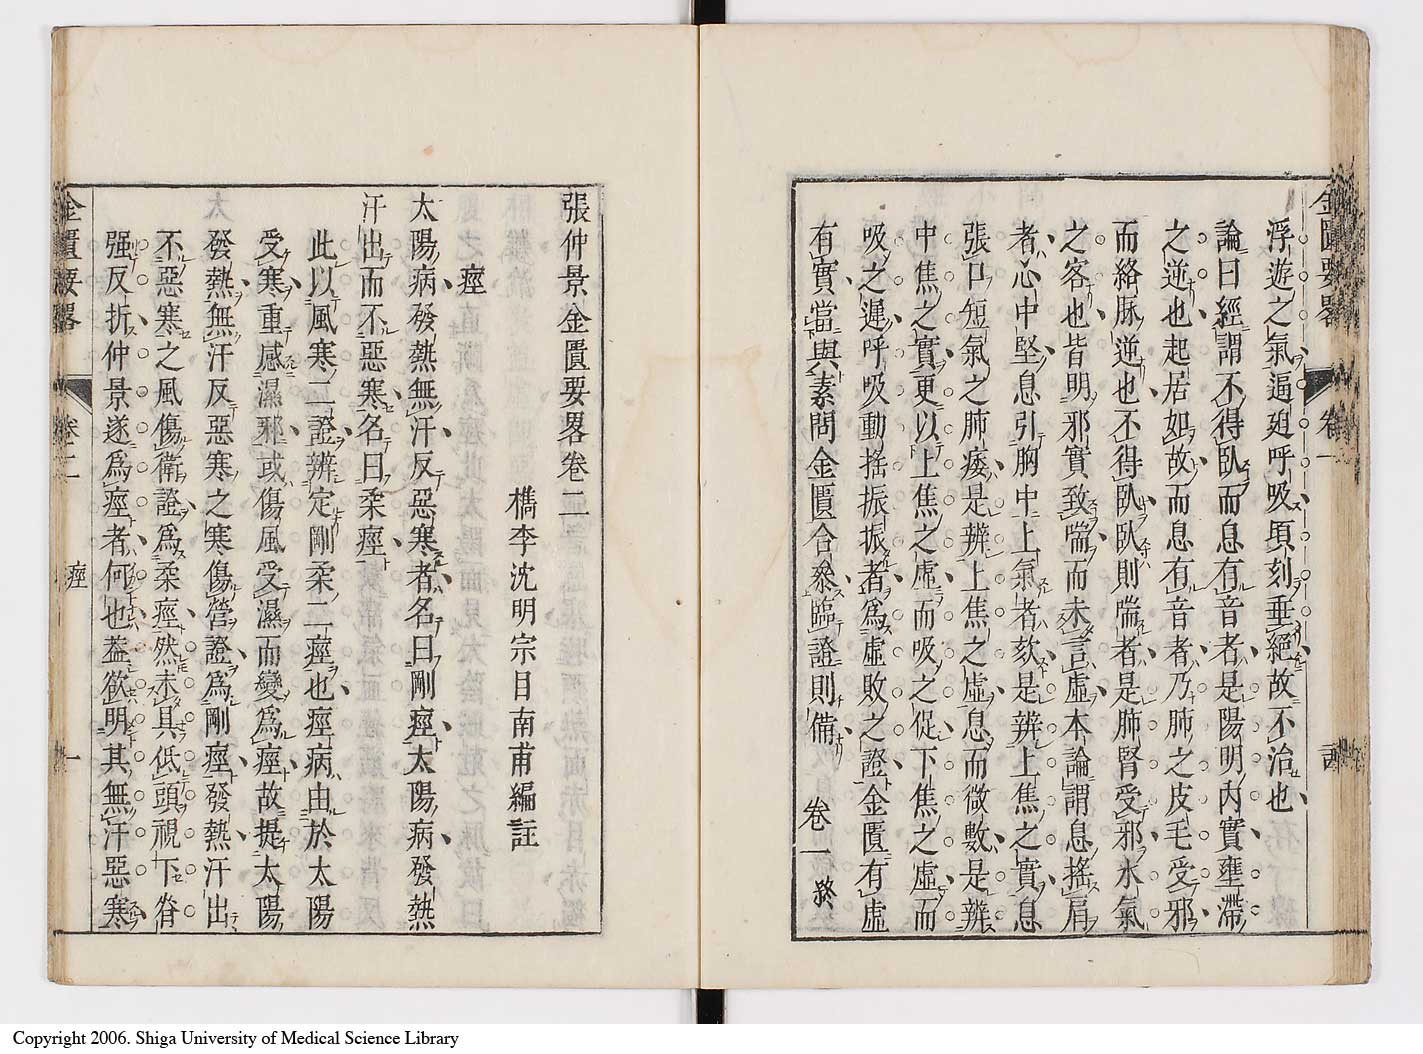 浮遊之氣逼𢌞呼吸頃刻垂絕故不治也
論曰經謂不得臥而息有音者是陽明內實壅滯
之逆也起居如故而息有音者乃肺之皮毛受邪
而絡脉逆也不得臥臥則喘者是肺腎受邪水氣
之客也皆明邪實致喘而未言虛本論謂息搖肩
者心中堅息引胸中上氣者欬是辨上焦之實息
張口短氣之肺痿是辨上焦之虛息而微數是辨
中焦之實更以上焦之虛而吸之促下焦之虛而
吸之遲呼吸動搖振振者爲虛敗之證金匱有虛
有實當與素問金匱合叅臨證則備
卷一終
金匱要畧 卷一
張仲景金匱要畧卷二
檇李沈明宗目南甫編註
痙
太陽病發熱無汗反惡寒者名曰剛痙太陽病發熱
汗出而不惡寒名曰柔痙
此以風寒二證辨定剛柔二痙也痙病由於太陽
受寒重感濕邪或傷風受濕而變爲痙故提太陽
發熱無汗反惡寒之寒傷營證爲剛痙發熱汗出
不惡寒之風傷衛證爲柔痙然未具低頭視下脊
强反折仲景遂爲痙者何也蓋欲明其無汗惡寒
金匱要畧 卷二 痙 一
Copyright 2006. Shiga University of Medical Science Library